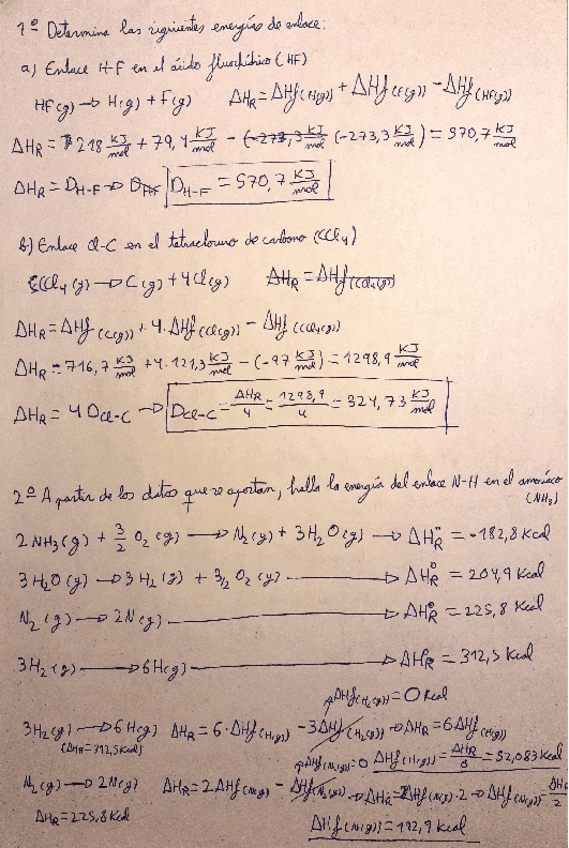 1º Determina las siguientes energías de enlace:
a) Enlace H-F en el ácido fluorhídrico (HF)
HF(g) → H(g) + F(g) ΔHR = ΔHf(H(g)) + ΔHf(F(g)) - ΔHf(HF(g))
ΔHR = 218 KJ/mol + 79,4 KJ/mol - (-273,3 KJ/mol) (-273,3 KJ/mol) = 570,7 KJ/mol
ΔHR = D H-F → D H-F = 570,7 KJ/mol
b) Enlace Cl-C en el tetracloruro de carbono (CCl4)
CCl4(g) → C(g) + 4Cl(g) ΔHR = ΔHf(CCl4(g))
ΔHR = ΔHf(C(g)) + 4·ΔHf(Cl(g)) - ΔHf(CCl4(g))
ΔHR = 716,7 KJ/mol + 4·121,3 KJ/mol - (-97 KJ/mol) = 1298,9 KJ/mol
ΔHR = 4 D Cl-C → D Cl-C = ΔHR/4 = 1298,9/4 = 324,73 KJ/mol
2º A partir de los datos que se aportan, halla la energía del enlace N-H en el amoníaco
(NH3)
2NH3(g) + 3/2 O2(g) → N2(g) + 3H2O(g) → ΔHRº = -182,8 Kcal
3H2O(g) → 3H2(g) + 3/2 O2(g) → ΔHRº = 204,9 Kcal
N2(g) → 2N(g) → ΔHRº = 225,8 Kcal
3H2(g) → 6H(g) → ΔHRº = 312,5 Kcal
ΔHf(H2(g)) = 0 Kcal
3H2(g) → 6H(g) ΔHR = 6·ΔHf(H(g)) - 3ΔHf(H2(g)) → ΔHR = 6ΔHf(H(g))
(ΔHR = 312,5 Kcal)
ΔHf(N2(g)) = 0 ΔHf(H(g)) = ΔHR/6 = 52,083 Kcal
N2(g) → 2N(g) ΔHR = 2·ΔHf(N(g)) - ΔHf(N2(g)) → ΔHR = ΔHf(N(g))·2 → ΔHf(N(g)) = ΔHR/2
ΔHR = 225,8 Kcal
ΔHf(N(g)) = 112,9 Kcal